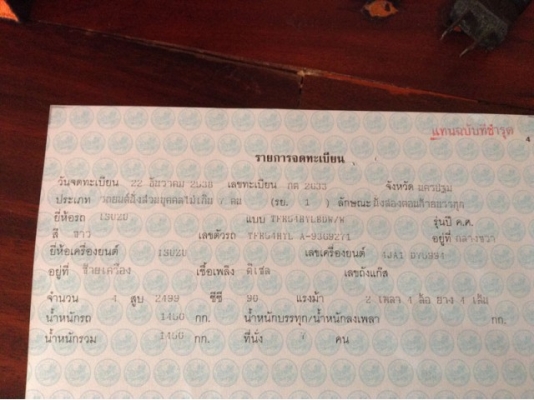 แทนฉบับที่ชำรุด
4
รายการจดทะเบียน
วันจดทะเบียน 22 ธันวาคม 2538 เลขทะเบียน กต 2633 จังหวัด นครปฐม
ประเภท รถยนต์นั่งส่วนบุคคลไม่เกิน 7 คน (รย. 1 ) ลักษณะ นั่งสองตอนท้ายบรรทุก
ยี่ห้อรถ ISUZU แบบ รุ่นปี ค.ศ.
สี ขาว เลขตัวรถ อยู่ที่ กลางขวา
ยี่ห้อเครื่องยนต์ ISUZU เลขเครื่องยนต์ 4JA1
อยู่ที่ ซ้ายเครื่อง เชื้อเพลิง ดีเซล เลขถังแก๊ส
จำนวน 4 สูบ 2499 ซีซี 90 แรงม้า 2 เพลา 4 ล้อ ยาง 4 เส้น
น้ำหนักรถ 1450 กก. น้ำหนักบรรทุก/น้ำหนักลงเพลา กก.
น้ำหนักรวม 1450 กก. ที่นั่ง คน